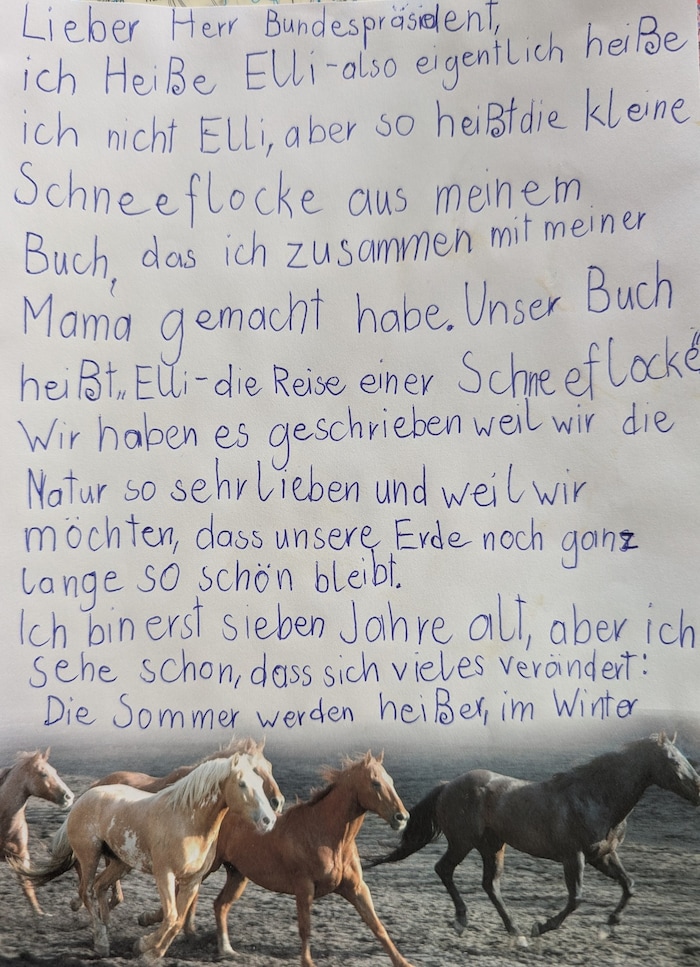 Lieber Herr Bundespräsident,
ich Heiße Elli-also eigentlich heiße
ich nicht Elli, aber so heißt die kleine
Schneeflocke aus meinem
Buch, das ich zusammen mit meiner
Mama gemacht habe. Unser Buch
heißt „Elli-die Reise einer Schneeflocke"
Wir haben es geschrieben weil wir die
Natur so sehr lieben und weil wir
möchten, dass unsere Erde noch ganz
lange so schön bleibt.
Ich bin erst sieben Jahre alt, aber ich
sehe schon, dass sich vieles verändert:
Die Sommer werden heißer, im Winter